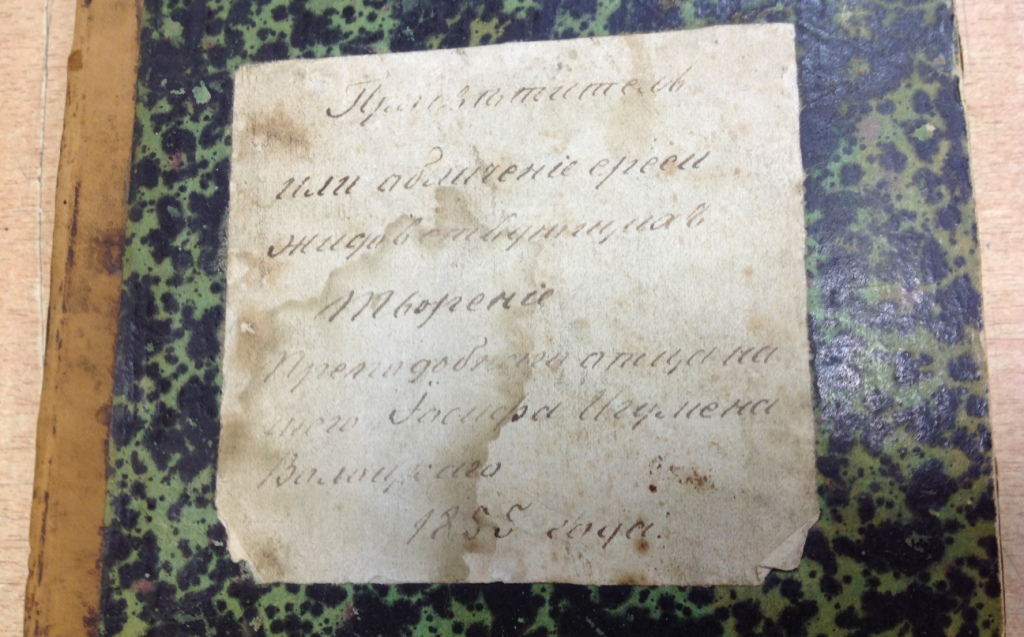 Просвѣтитель
или обличеніе ереси
жидовствующихъ
Твореніе
Преподобного отца на
шего Іосифа Игумена
Волоцкаго
1855 года.